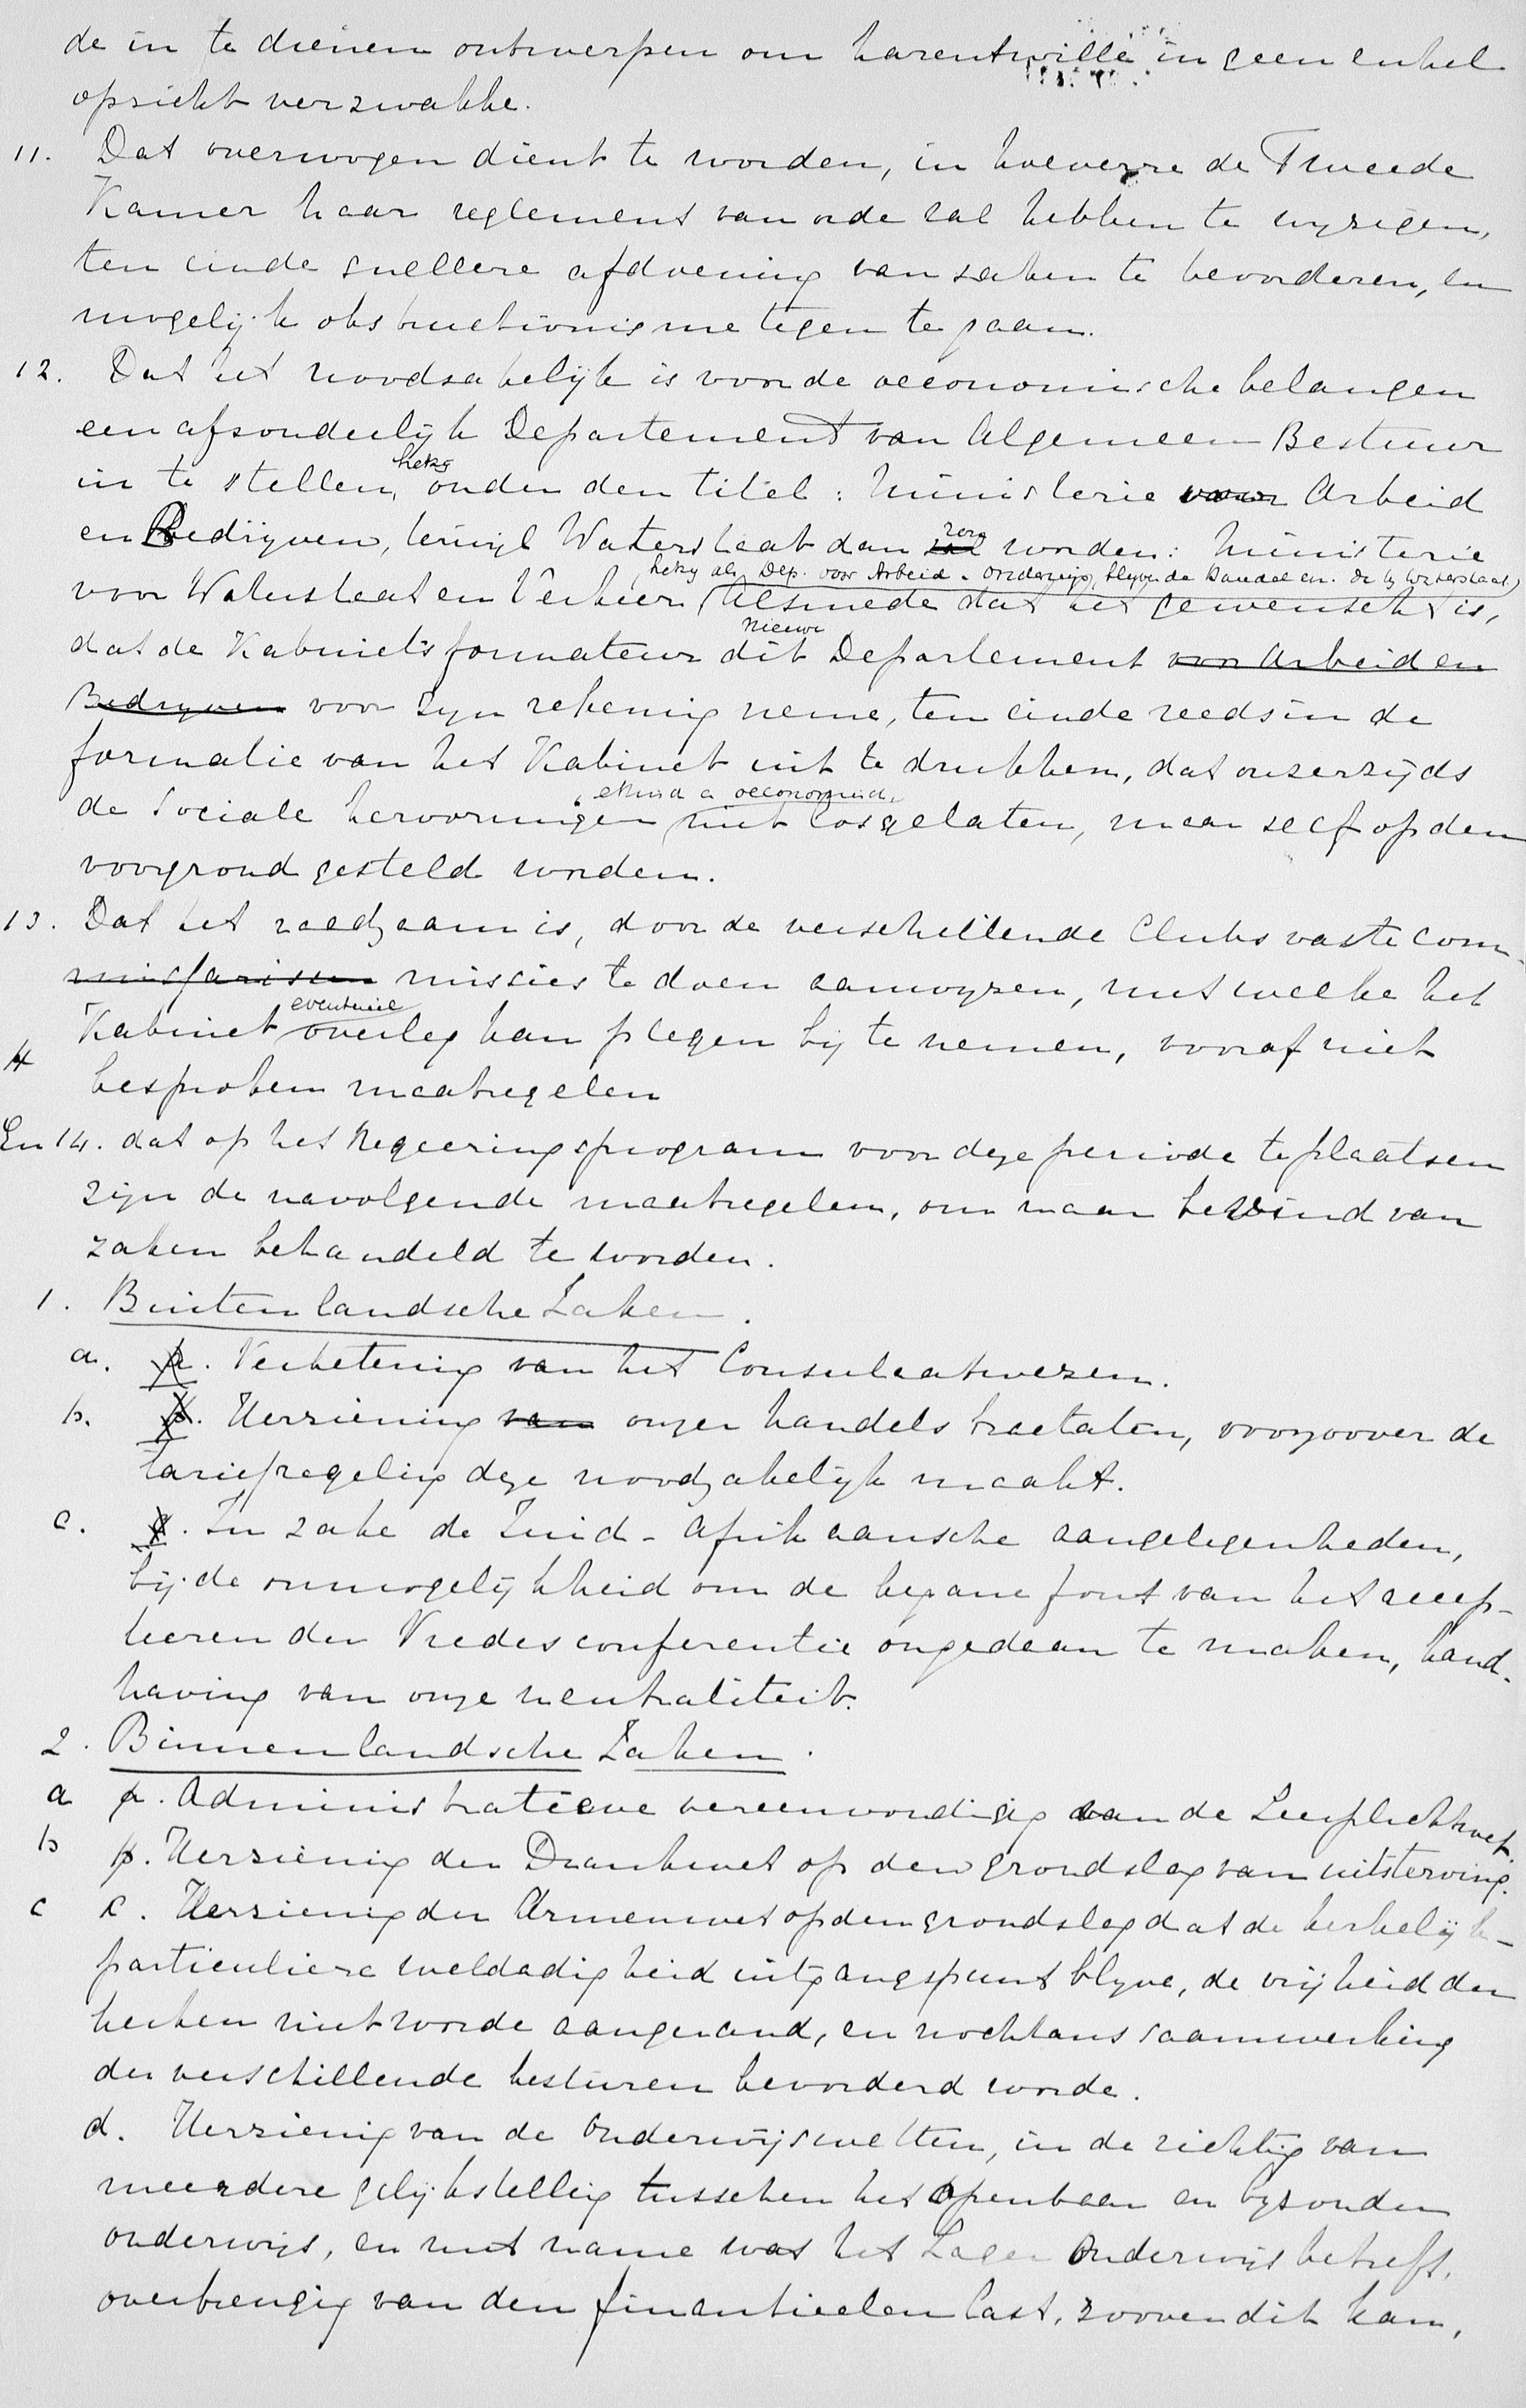 de in te dienen ontwerpen om harentwille in geen enkel
opzicht verzwakke.
11. Dat overwogen dient te worden, in hoeverre de Tweede
Kamer haar reglement van orde zal hebben te wyzigen,
ten einde snellere afdoening van zaken te bevorderen, en
mogelijk obstructionisme tegen te gaan.
12. Dat het noodzakelijk is voor de oeconomische belangen
een afzonderlijk Departement van Algemeen Bestuur
hetzy
in te stellen, onder den titel: Ministerie voor Arbeid
zou
en Bedrijven, terwijl Waterstaat dan zal worden: Ministerie
hetzy als Dep. voor Arbeid. Onderwijs, blyvende Handel en. by Waterstaat)
voor Waterstaat en Verkeer (Alsmede dat het gewenscht is,
nieuwe
dat de Kabinetsformateur dit Departement voor Arbeid en
Bedryven voor zyn rekening neme, ten einde reeds in de
formatie van het Kabinet uit te drukken, dat onzerzijds
oeconomisch
de sociale hervormingen niet losgelaten, maar zelf op den
voorgrond gesteld worden.
13. Dat het raadzaam is, door de verschillende Clubs vaste com-
missarissen missies te doen aanwyzen, met welke het
eventueel
Kabinet overleg kan plegen bij te nemen, vooraf niet
besproken maatregelen
En 14. dat op het Regeeringsprogram voor deze periode te plaatsen
zijn de navolgende maatregelen, om naar bevind van
zaken behandeld te worden.
1. Buitenlandsche Zaken.
a. a. Verbetering van het Consulaatwezen.
b. b. Herziening van onzer handelstractaten, voorzoover de
tariefregeling deze noodzakelijk maakt.
c. c. In zake de Zuid-Afrikaansche aangelegenheden,
bij de onmogelijkheid om de begane fout van het accep-
teeren der Vredesconferentie ongedaan te maken, hand-
having van onze neutraliteit.
2. Binnenlandsche Zaken.
a a. Administratieve vereenvoudiging van de Leerplichtwet.
b b. Herziening der Drankwet op den grondslag van uitsterving.
c c. Herziening der Armenwet op den grondslag dat de kerkelijk-
particuliere weldadigheid uitgangspunt blyve, de vrijheid der
kerken niet worde aangerand, en nochtans saamwerking
der verschillende besturen bevorderd worde.
d. Herziening van de onderwijswetten, in de richting van
meerdere gelijkstelling tusschen het openbaar en byzonder
onderwijs, en met name wat het Lager Onderwijs betreft,
overbrenging van den financieelen last, zooveel dit kan,